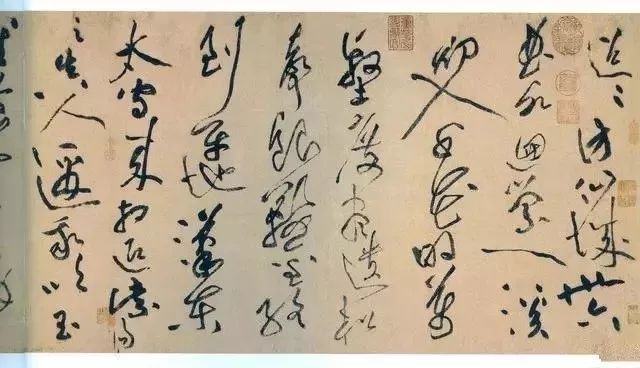 迢〻訪仙城卅六
曲水迴縈一溪
初入千花明萬
壑度盡
聲銀鞍金絡
到平地漢東
太守來相迎紫陽
之真人邀我吹玉